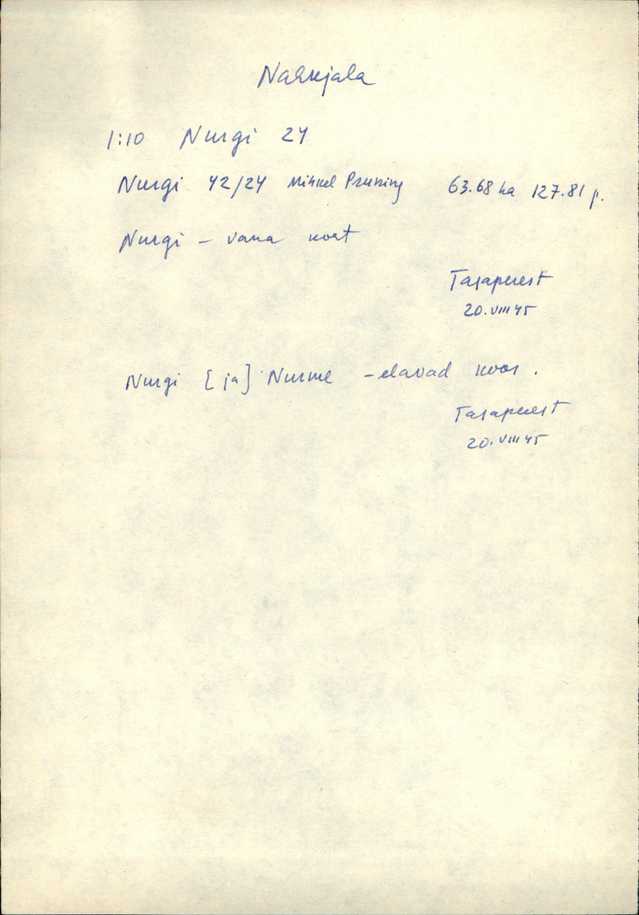 Nahkjala
1:10 Nurgi 24
Nurgi 42/24 Mihkel Pruning 63.68 ha 127.81 p.
Nurgi – vana koht
Tasaperest
20.VIII 45
Nurgi [ja] Nurme – elavad koos.
Tasaperest
20.VIII 45